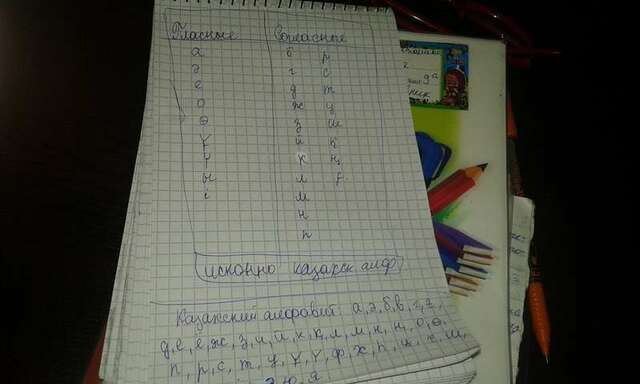 Гласные Согласные
а б р
ә г с
е д т
о ж ц
ө з ш
ұ й қ
ү к ң
ы л ғ
і м
н
п
исконно казахск. алф
Казахский алфавит: а, ә, б, в, г, ғ,
д, е, ё, ж, з, и, й, к, қ, л, м, н, ң, о, ө,
п, р, с, т, у, ұ, ү, ф, х, һ, ц, ч, ш,
э, ю, я